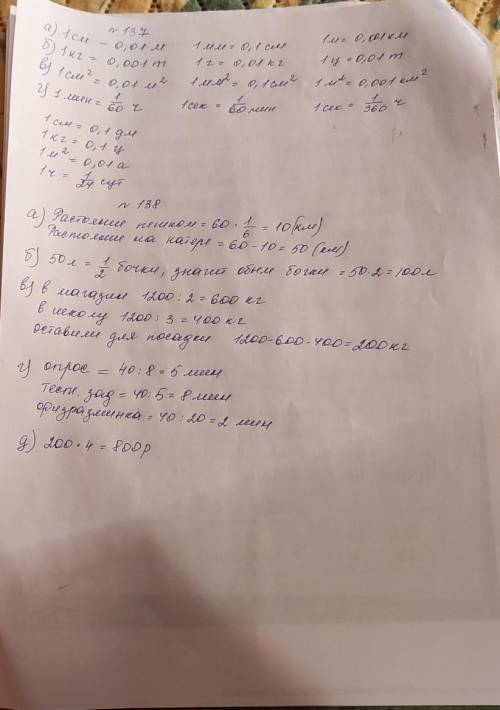 № 137
а) 1см - 0,01 м 1мм = 0,1 см 1м = 0,001км
б) 1кг = 0,001 т 1г = 0,01кг 1ц = 0,01 т
в) 1см² = 0,01 м² 1мм² = 0,1см² 1м² = 0,001 км²
г) 1 мин = 1/60 ч 1сек = 1/60 мин 1сек = 1/360 ч
1см = 0,1 дм
1кг = 0,1 ц
1м² = 0,01а
1ч = 1/24 сут
№ 138
а) Растояние пешком = 60 · 1/6 = 10 (км)
Растояние на катере = 60 - 10 = 50 (км)
б) 50л = 1/2 бочки, значит объем бочки = 50·2 = 100л
в) в магазин 1200 : 2 = 600 кг
в школу 1200 : 3 = 400 кг
оставили для посадки 1200-600-400=200кг
г) опрос = 40 : 8 = 5 мин
тест. зад = 40 : 5 = 8 мин
физразминка = 40 : 20 = 2 мин
д) 200 · 4 = 800р